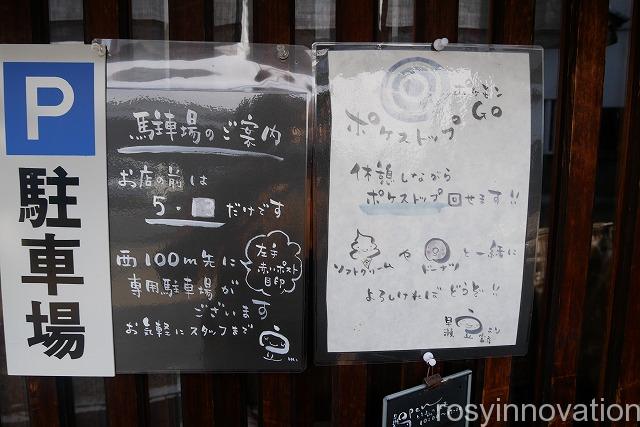 P
駐車場
駐車場のご案内
お店の前は
5・
だけです
西100m先に
専用駐車場が
ございます
お気軽にスタッフまで
左手
赤いポスト
目印
ポケモン
GO
ポケストップ
休憩しながら
ポケストップ回せます!!
ソフトクリーム
や
ドーナツ
と一緒に
よろしければどうぞ!!
open
rosyinnovation